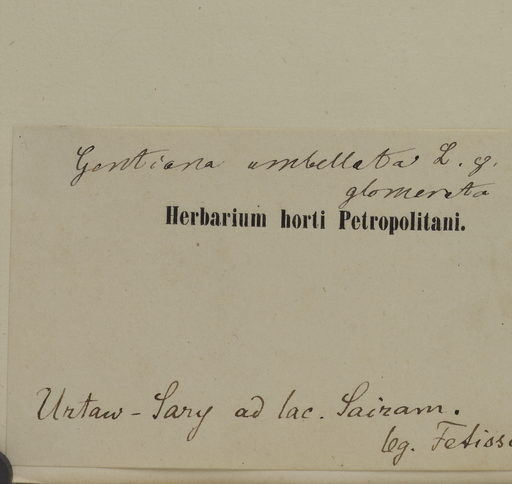 Gentiana umbellata L. γ.
glomerata
Herbarium horti Petropolitani.
Urtaw-Sary ad lac. Sairam.
lg. Fetisso